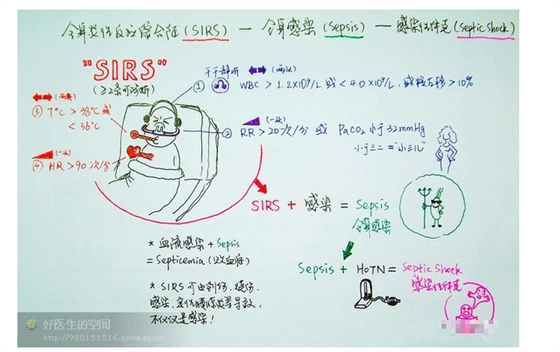 全身炎性反应综合征(SIRS) — 全身感染(Sepsis) — 感染性休克(Septic Shock)
"SIRS"
(≥2条可诊断)
① (两次) WBC > 1.2×10⁹/L 或 < 4.0×10⁹/L, 或核左移 > 10%
③ T°C > 38°C 或
< 36°C
② (一次) RR > 20次/分 或 PaCO₂ 小于 32mmHg
小于三二 = "小三儿"
④ HR > 90次/分
SIRS + 感染 = Sepsis
全身感染
* 血流感染 + Sepsis
= Septicemia (败血症)
Sepsis + HOTN = Septic Shock
感染性休克
* SIRS 可由创伤、烧伤、
感染、
不仅仅是感染!
好医生的空间
http://900151516.qzone.qq.com